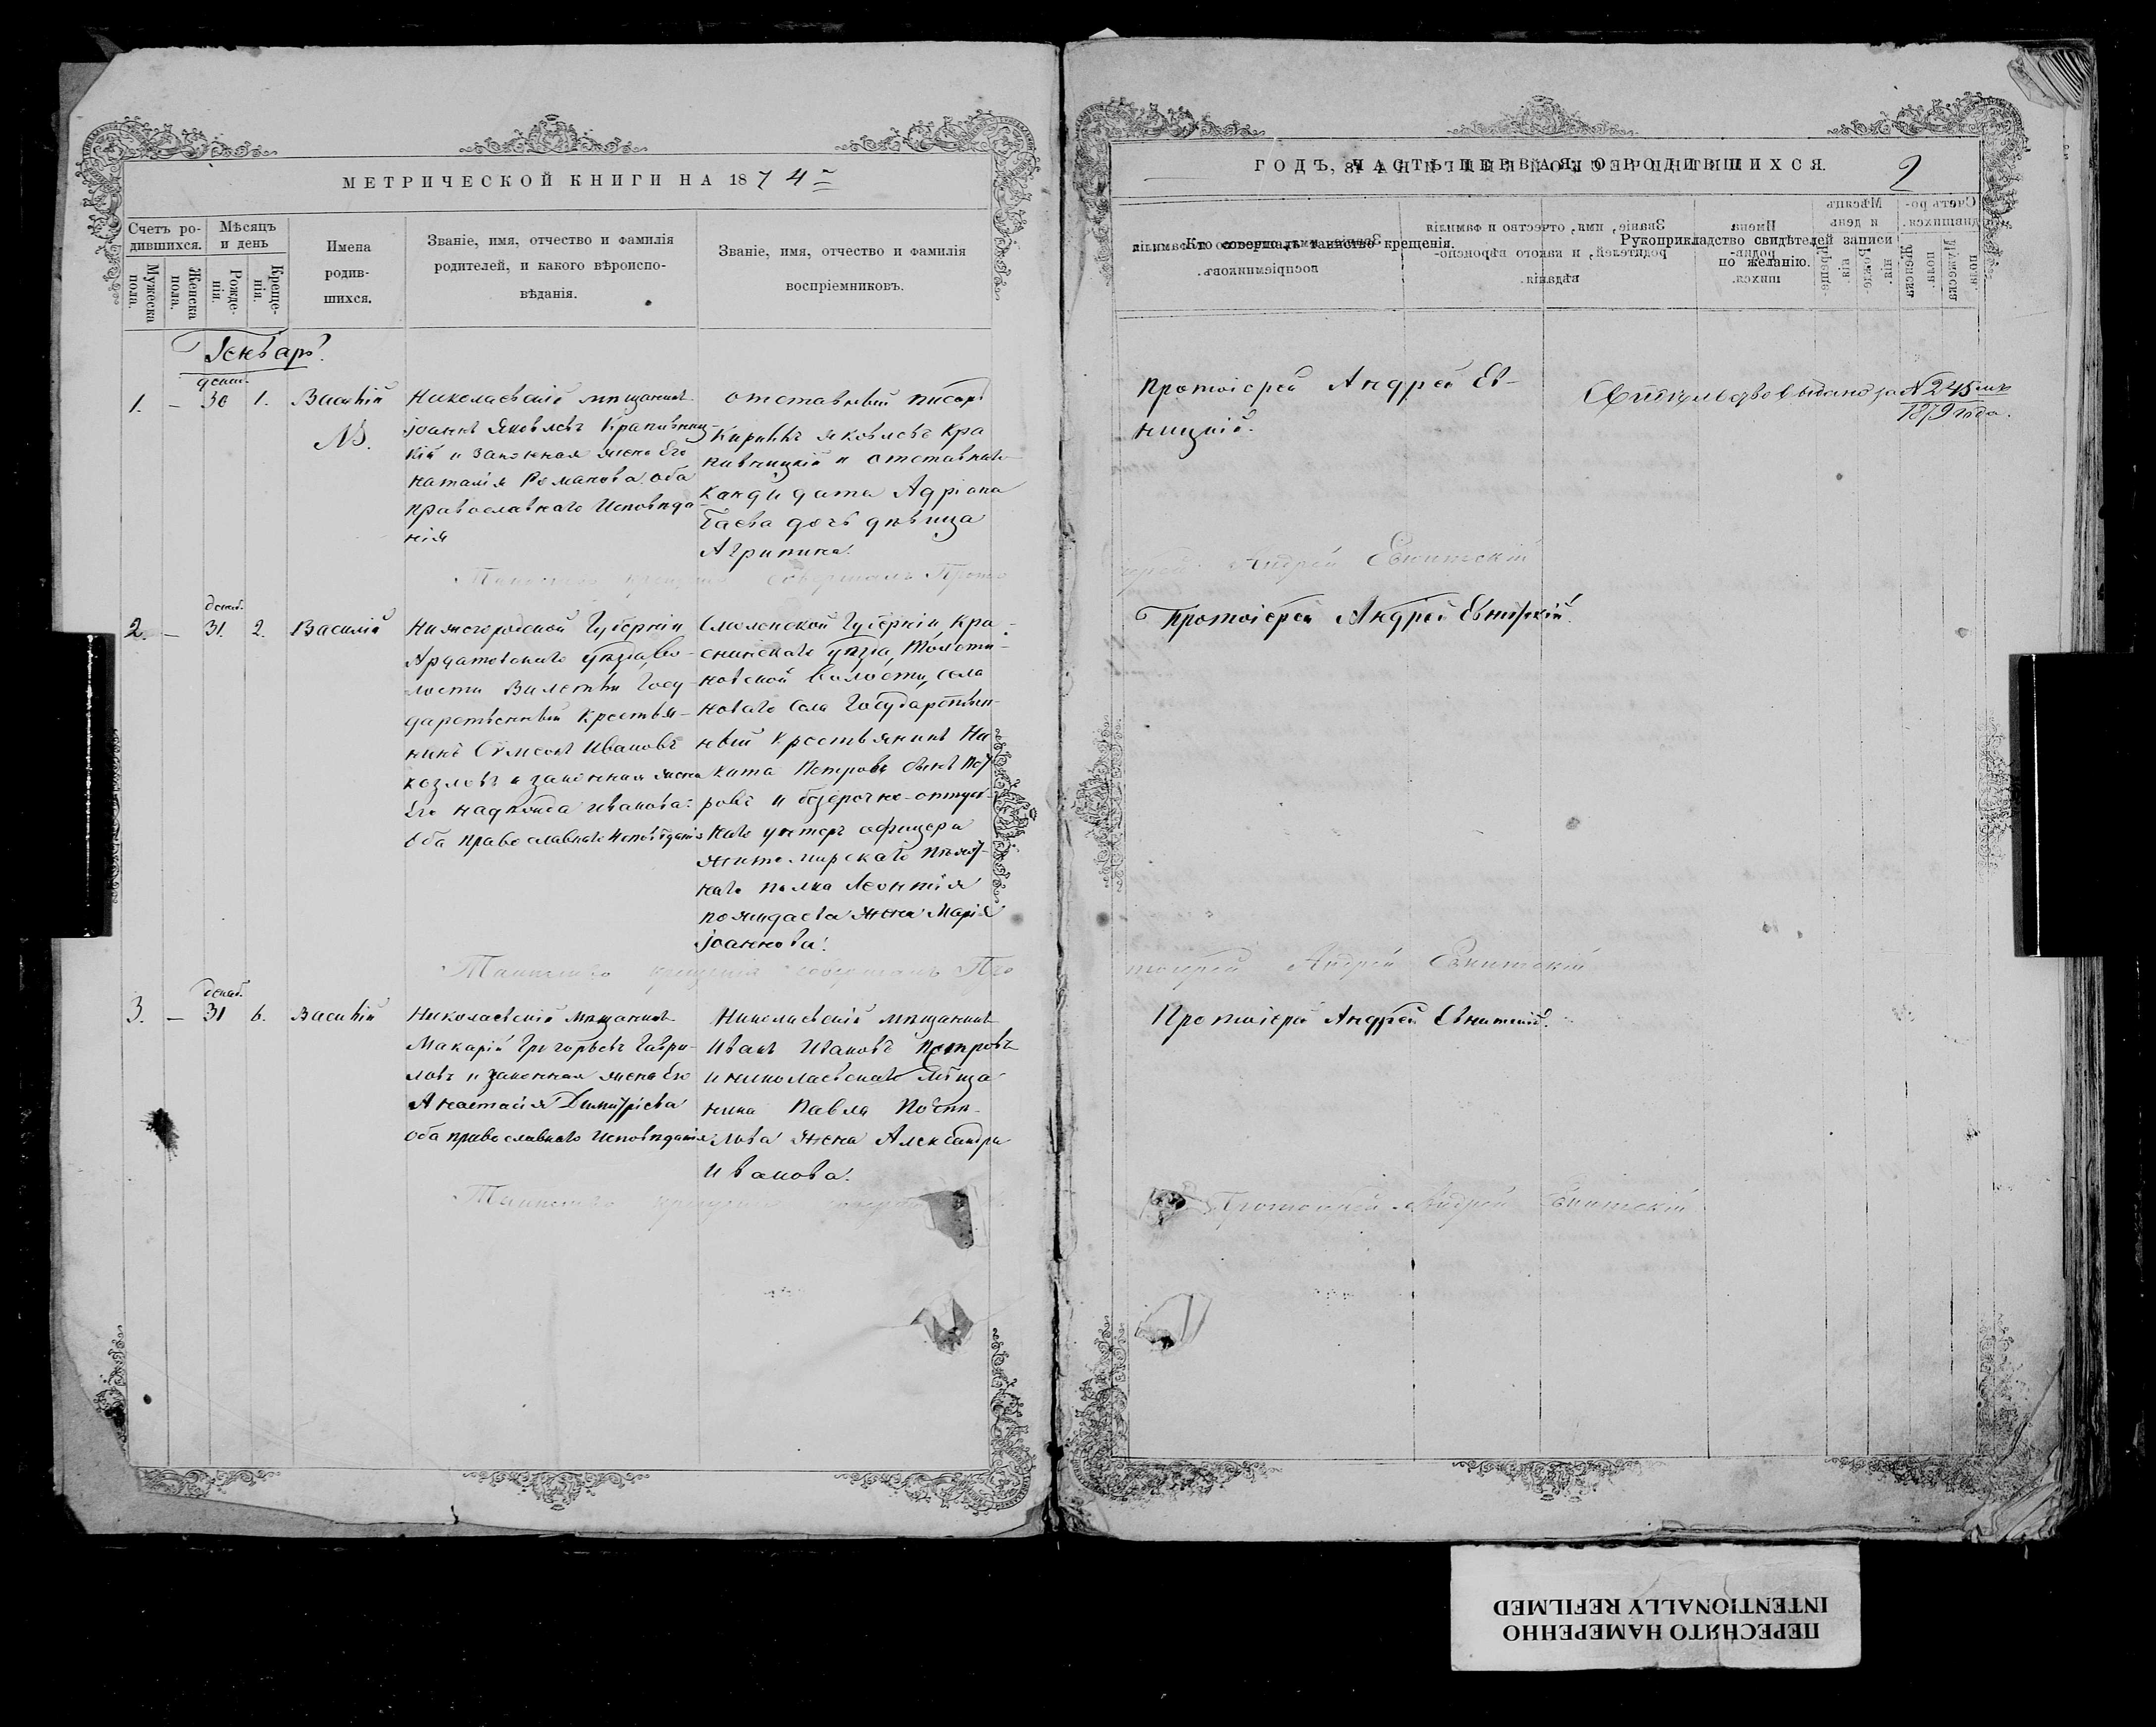 МЕТРИЧЕСКОЙ КНИГИ НА 1874
Счетъ ро-
дившихся.
Мужеска
пола.
Женска
пола.
Мѣсяцъ
и день
Рожде-
нія.
Креще-
нія.
Имена
родив-
шихся.
Званіе, имя, отчество и фамилія
родителей, и какого вѣроиспо-
вѣданія.
Званіе, имя, отчество и фамилія
воспріемниковъ.
Генварь.
1. — декаб. 30 1. Василій
NB.
Николаевскій мѣщанинъ
Іоаннъ Яковлевъ Крапивниц-
кій и законная жена Его
Наталія Романова, оба
православнаго Исповѣда-
нія
отставный писарь
Кириллъ Яковлевъ Кра
пивницкій и отставнаго
кандидата Адріана
дочь дѣвица
Агрипина.
Таинство крещенія совершалъ Прото
2. — декаб. 31. 2. Василій
Нижегородской Губерніи
Ардатовскаго уѣзда, во-
лости Госу-
дарственный крестья-
нинъ Симеонъ Ивановъ
Козловъ и законная жена
Его Надежда Иванова.
оба православнаго Исповѣданія
Смоленской Губерніи, Кра-
снинскаго уѣзда,
новской волости, села
новаго села Государствен-
ный крестьянинъ Ни
кита Петровъ сынъ Пет
ровъ и безсрочно-отпуск-
наго унтеръ офицера
Житомирскаго пѣхот-
наго полка Леонтія
жена Марія
Іоаннова.
Таинство крещенія совершалъ Про
3. — декаб. 31 6. Василій
Николаевскій мѣщанинъ
Макарій Григорьевъ Гаври-
ловъ и законная жена Его
Анастасія Димитріева
оба православнаго Исповѣданія.
Николаевскій мѣщанинъ
Иванъ Ивановъ Петровъ
и николаевскаго мѣща
нина Павла
лова жена Александра
Иванова.
Таинство крещенія
ГОДЪ, ЧАСТЬ ПЕРВАЯ, О РОДИВШИХСЯ.
2
Кто совершалъ таинство крещенія.
Рукоприкладство свидѣтелей записи
по желанію.
Протоіерей Андрей Ев-
ницкій.
Свидѣтельство выдано за N 245
1879 года.
ерей Андрей Евнитскій
Протоіерей Андрей Евнитскій.
тоіерей Андрей Евнитскій
Протоіерей Андрей Евнитскій.
Протоіерей Андрей Евнитскій
ПЕРЕСНЯТО НАМЕРЕННО
INTENTIONALLY REFILMED